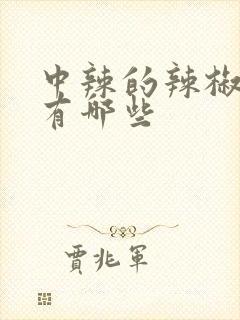 中辣的辣椒
有哪些
贾兆军